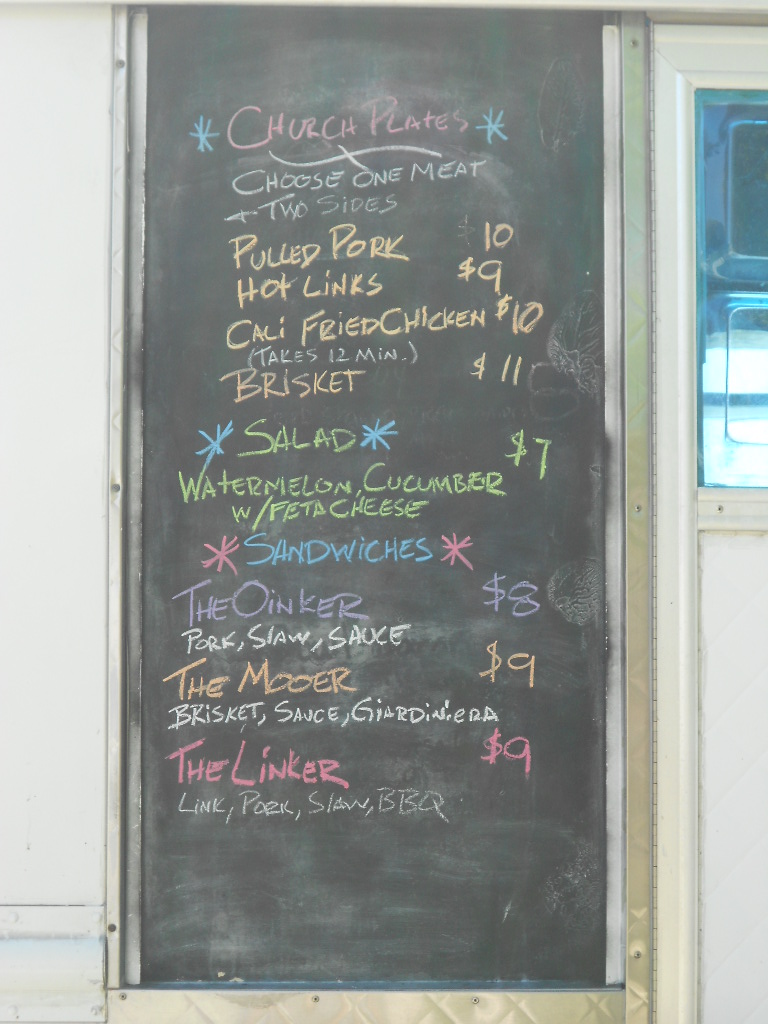 * CHURCH PLATES *
CHOOSE ONE MEAT
+ TWO SIDES
PULLED PORK $10
HOT LINKS $9
CALI FRIED CHICKEN $10
(TAKES 12 MIN.)
BRISKET $11
* SALAD * $7
WATERMELON, CUCUMBER
W/ FETA CHEESE
* SANDWICHES *
THE OINKER $8
PORK, SLAW, SAUCE
THE MOOER $9
BRISKET, SAUCE, GIARDINIERA
THE LINKER $9
LINK, PORK, SLAW, BBQ